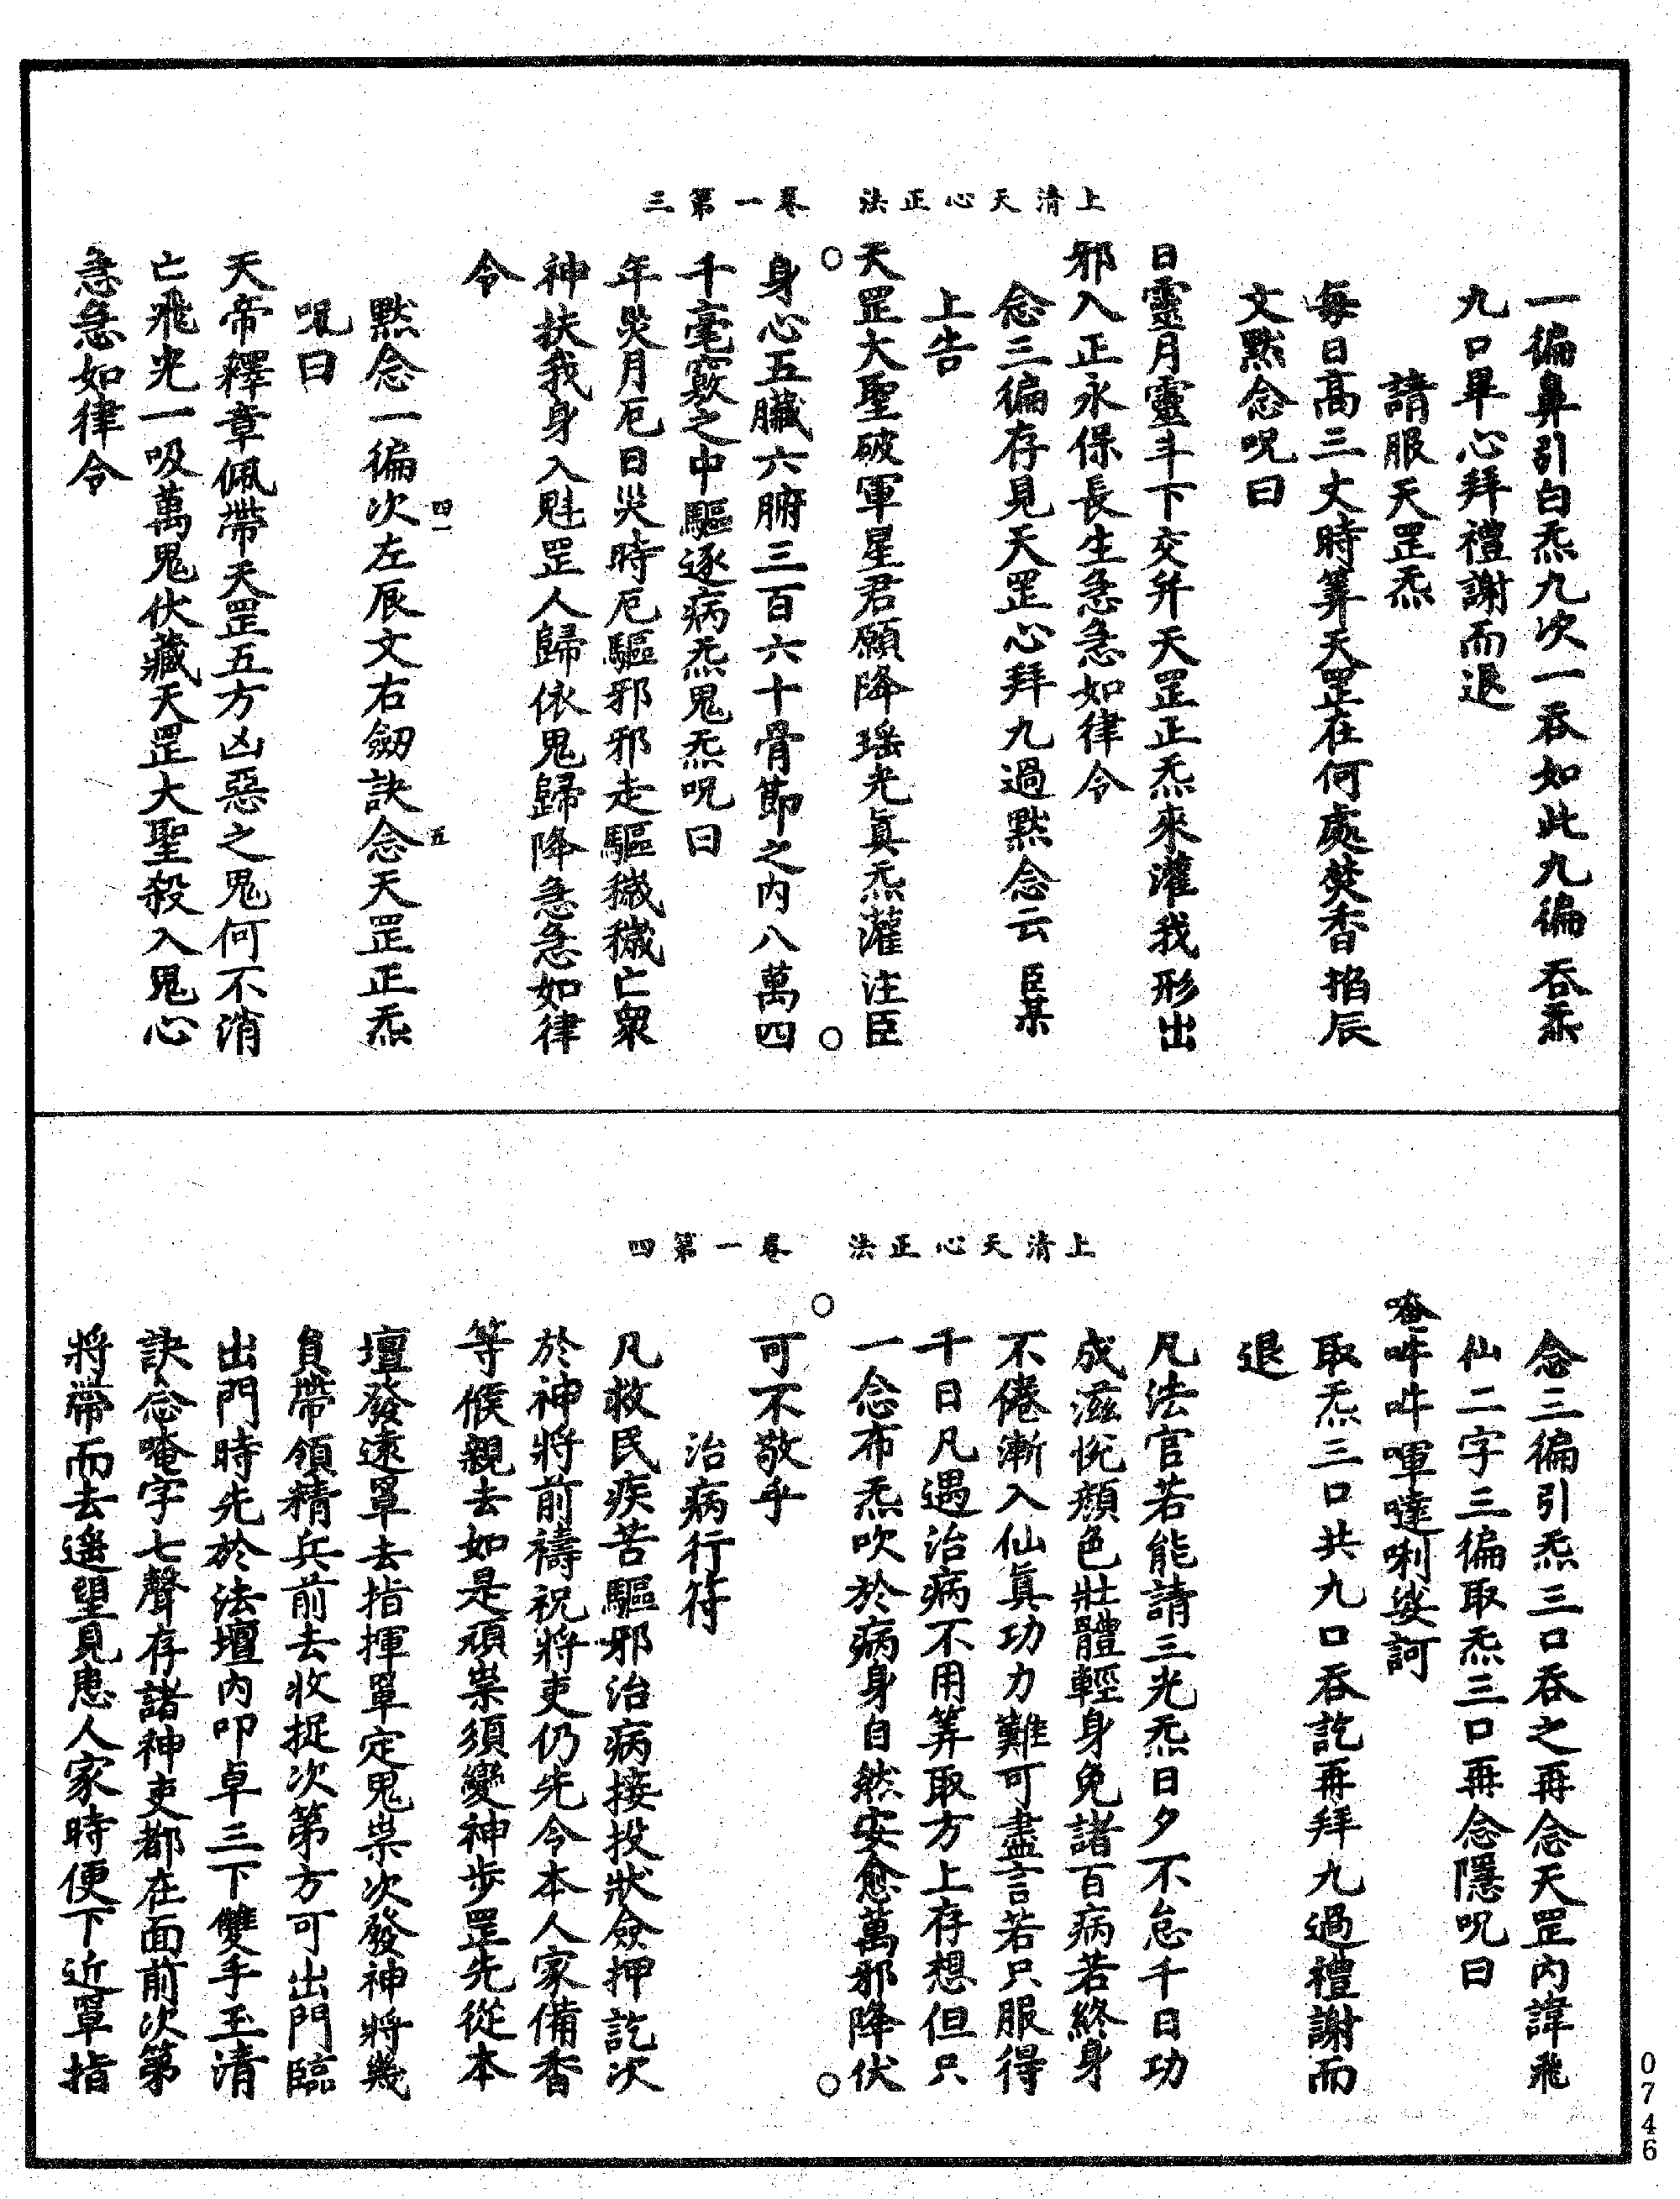 上清天心正法　卷一第三
一徧鼻引白炁九次一吞如此九徧吞炁
九口畢心拜禮謝而退
請服天罡炁
每日高三丈時筭天罡在何處焚香掐辰
文黙念呪曰
日靈月靈斗下交并天罡正炁來灌我形出
邪入正永保長生急急如律令
念三徧存見天罡心拜九過黙念云臣某
上告
天罡大聖破軍星君願降瑤光眞炁灌注臣
身心五臟六腑三百六十骨節之内八萬四
千毫竅之中驅逐病炁鬼炁呪曰
年災月厄日災時厄驅邪邪走驅穢穢亡衆
神扶我身入魁罡人歸依鬼歸降急急如律
令
黙念一徧次左辰文右劒訣念天罡正炁
四一
五
呪曰
天帝釋章佩帶天罡五方凶惡之鬼何不消
亡飛光一吸萬鬼伏藏天罡大聖殺入鬼心
急急如律令
上清天心正法　卷一第四
念三徧引炁三口吞之再念天罡内諱飛
仙二字三徧取炁三口再念隱呪曰
唵吽吽㖶噠唎娑訶
取炁三口共九口吞訖再拜九過禮謝而
退
凡法官若能請三光炁日夕不怠千日功
成滋悅顏色壯體輕身免諸百病若終身
不倦漸入仙眞功力難可盡言若只服得
千日凡遇治病不用筭取方上存想但只
一念布炁吹於病身自然安愈萬邪降伏
可不敬乎
治病行符
凡救民疾苦驅邪治病接投狀僉押訖次
於神將前禱祝將吏仍先令本人家備香
等候親去如是頑祟須變神步罡先從本
壇發遠罩去指揮罩定鬼祟次發神將幾
員帶領精兵前去收捉次第方可出門臨
出門時先於法壇内叩卓三下雙手玉清
訣念唵字七聲存諸神吏都在面前次第
將帶而去遙望見患人家時便下近罩指
0746